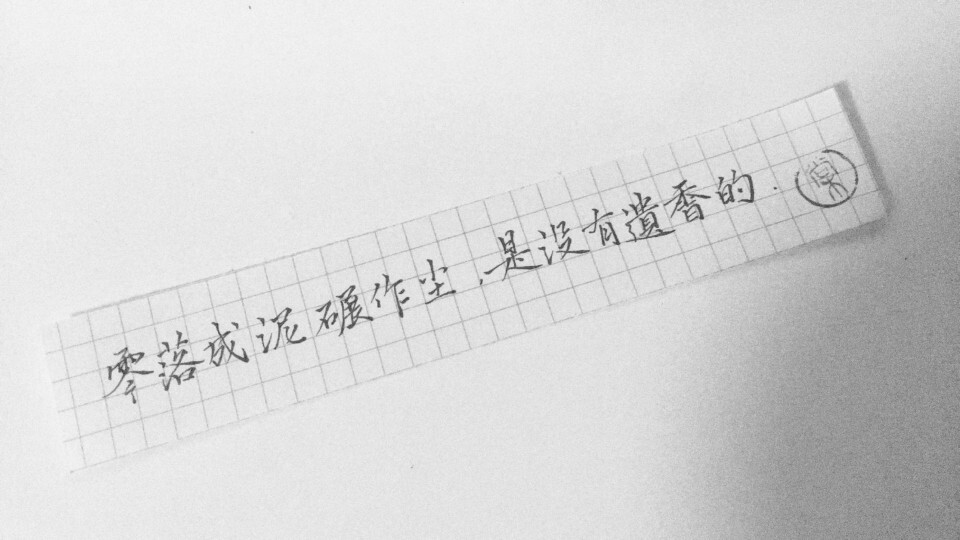 零落成泥碾作尘,是没有遺香的.